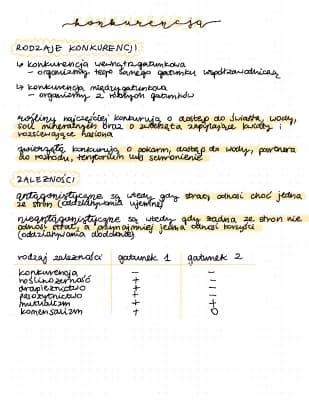 konkurencja
RODZAJE KONKURENCJI
↳ konkurencja wewnątrzgatunkowa
- organizmy tego samego gatunku współzawodniczą
↳ konkurencja międzygatunkowa
- organizmy z różnych gatunków
rośliny najczęściej konkurują o dostęp do światła, wody,
soli mineralnych oraz o zwierzęta zapylające kwiaty i
rozsiewające nasiona
zwierzęta konkurują o pokarm, dostęp do wody, partnera
do rozrodu, terytorium lub schronienie
ZALEŻNOŚCI
antagonistyczne są wtedy gdy straci odnosi choć jedna
ze stron (oddziaływania ujemne)
nieantagonistyczne są wtedy gdy żadna ze stron nie
odnosi strat, a przynajmniej jedna odnosi korzyści
(oddziaływania dodatnie)
rodzaj zależności gatunek 1 gatunek 2
konkurencja - -
roślinożerność + -
drapieżnictwo + -
pasożytnictwo + -
mutualizm + +
komensalizm + 0